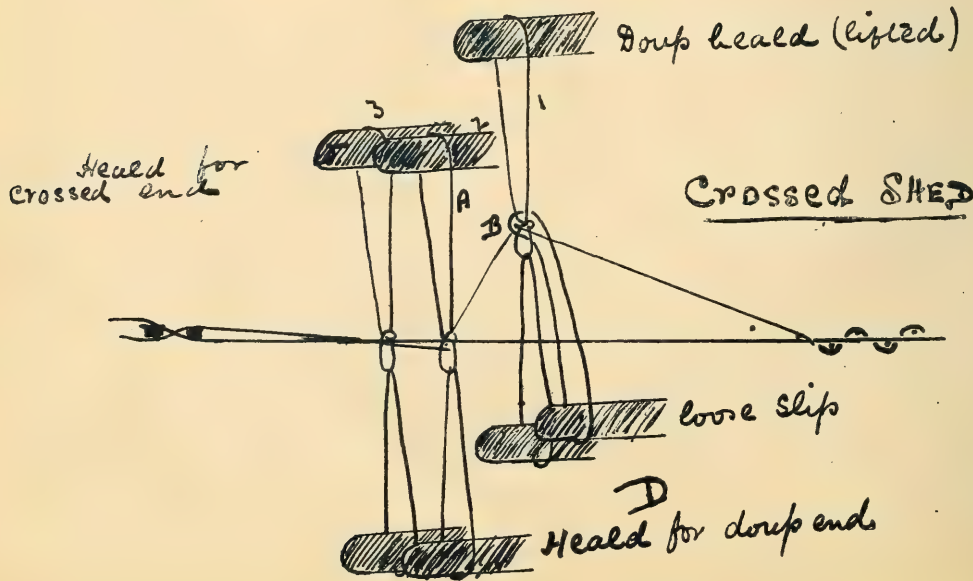 Doup heald (lifted)
1
3
2
Heald for
crossed end
A
Crossed SHED
B
loose slip
D
Heald for doup ends